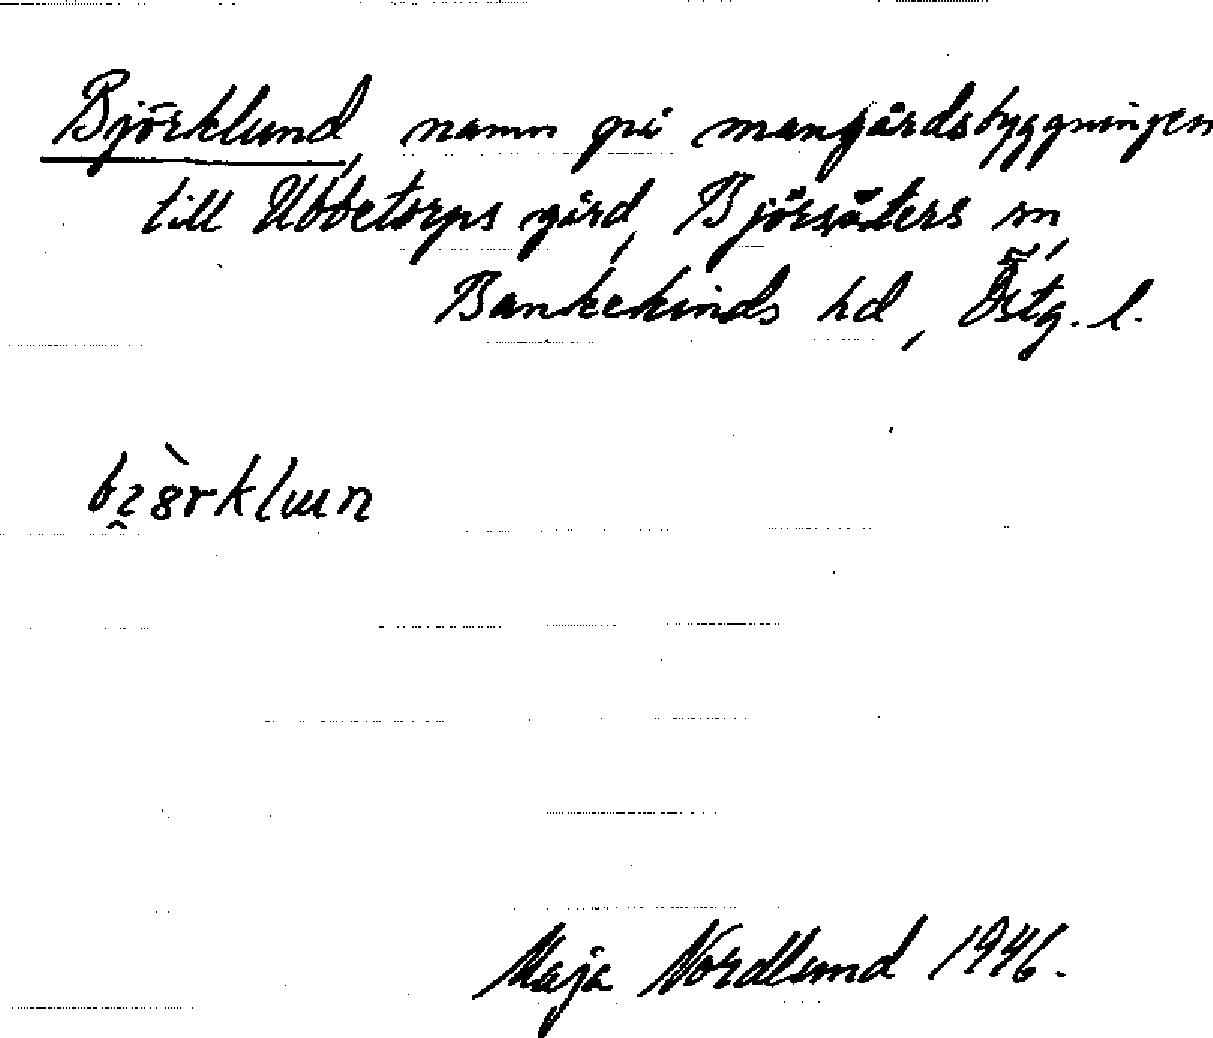 Björklund, namn på mangårdsbyggningen
till Ubbetorps gård, Björsäters sn,
Bankekinds hd, Östg. l.
Maja Nordlund 1946.